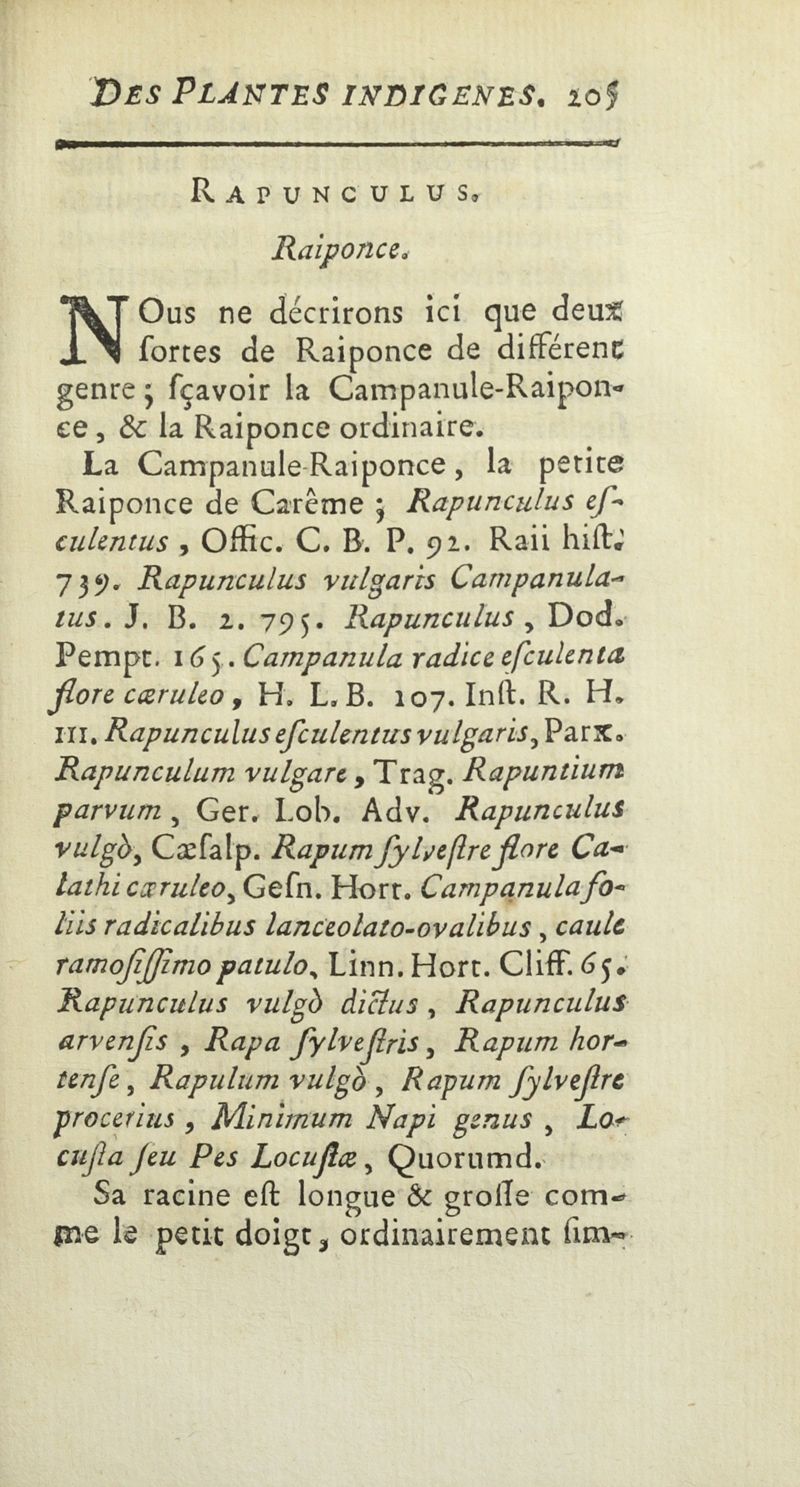 DES PLANTES INDIGENES. 205
RAPUNCULUS.
Raiponce.
NOus ne décrirons ici que deux
ſortes de Raiponce de différent
genre ; ſçavoir la Campanule-Raipon-
ce, & la Raiponce ordinaire.
La Campanule-Raiponce, la petite
Raiponce de Carême ; Rapunculus eſ-
culentus, Offic. C. B. P. 92. Raii hiſt.
739. Rapunculus vulgaris Campanula-
tus. J. B. 2. 795. Rapunculus, Dod.
Pempt. 165. Campanula radice eſculenta
flore cæruleo, H. L. B. 107. Inſt. R. H.
111. Rapunculus eſculentus vulgaris, Parx.
Rapunculum vulgare, Trag. Rapuntium
parvum, Ger. Lob. Adv. Rapunculus
vulgò, Cæſalp. Rapum ſylveſtre flore Ca-
lathi cæruleo, Geſn. Hort. Campanula fo-
liis radicalibus lanceolato-ovalibus, caule
ramoſiſſimo patulo, Linn. Hort. Cliff. 65.
Rapunculus vulgò dictus, Rapunculus
arvenſis, Rapa ſylveſtris, Rapum hor-
tenſe, Rapulum vulgò, Rapum ſylveſtre
procerius, Minimum Napi genus, Lo-
cuſta ſeu Pes Locuſtæ, Quorumd.
Sa racine eſt longue & groſſe com-
me le petit doigt, ordinairement ſim-